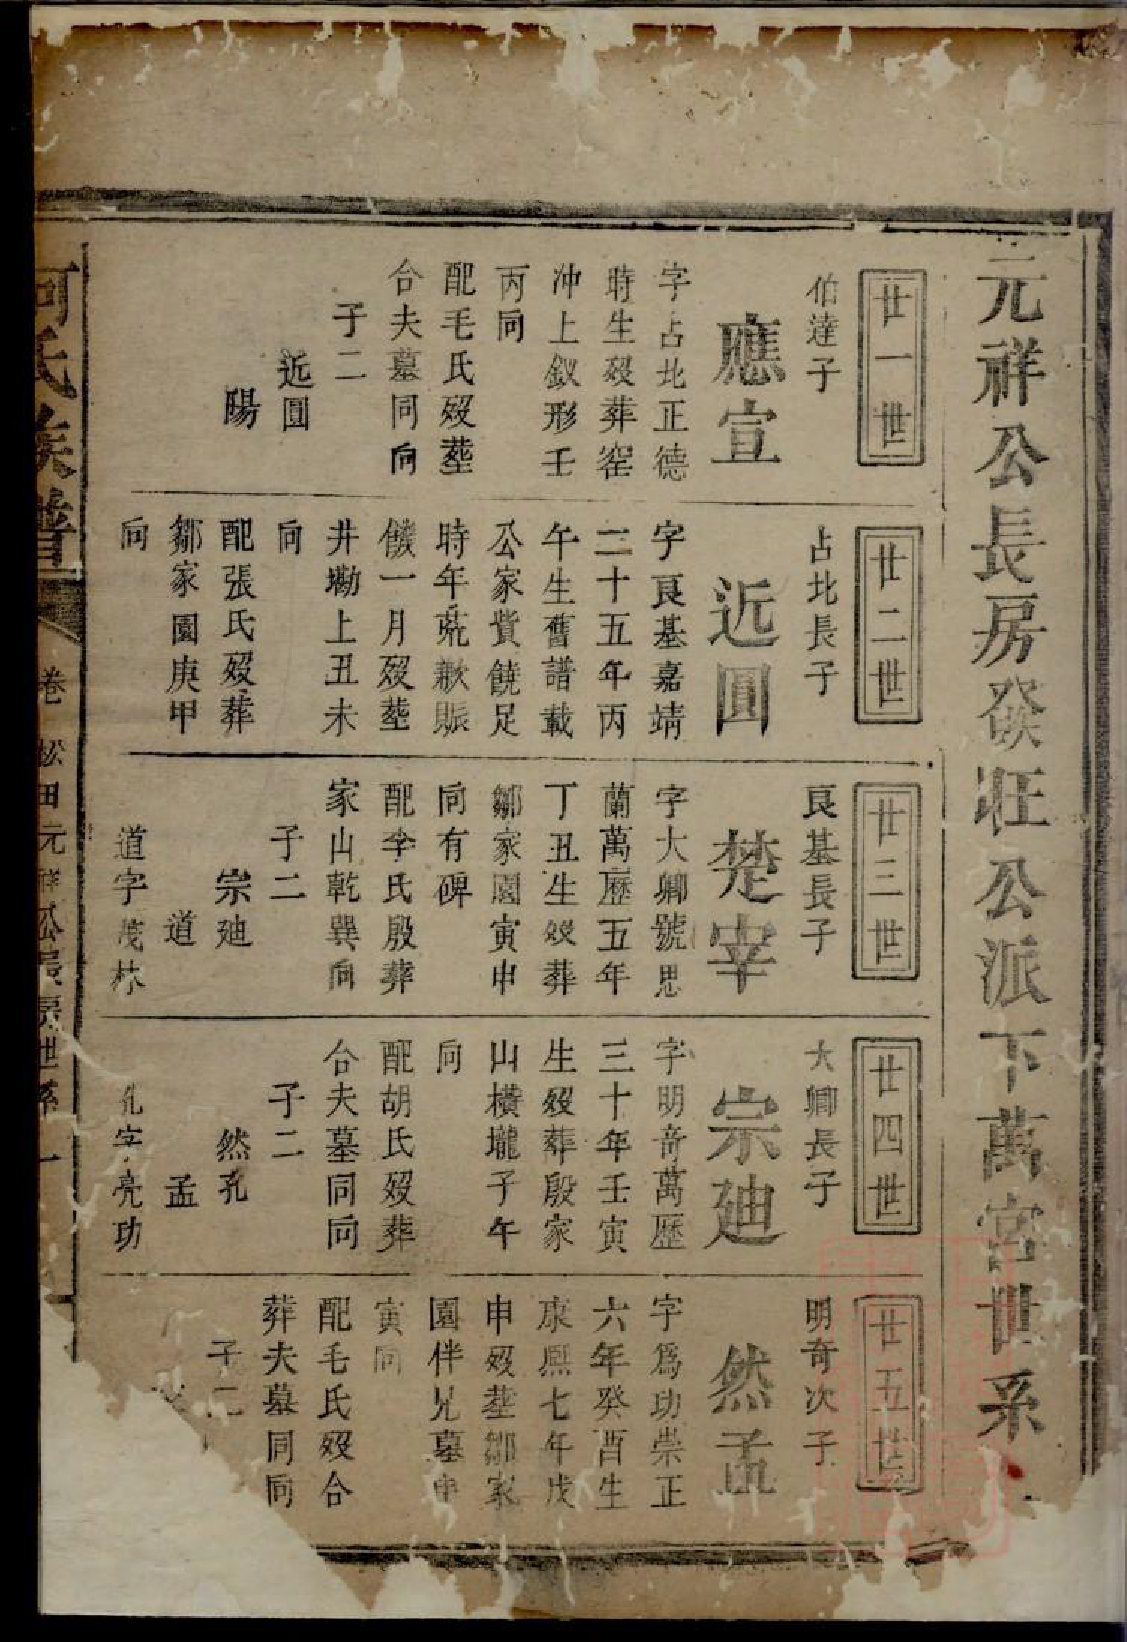 元祥公長房發壯公派下萬宮世系
廿一世
伯達子
應宣
字占北正德
時生歿葬窑
冲上釵形壬
丙向
配毛氏歿塟
合夫墓同向
子二
近圓
陽
廿二世
占北長子
近圓
字良基嘉靖
二十五年丙
午生舊譜載
公家貲饒足
時年荒歉賑
饑一月歿塟
井塝上丑未
向
配張氏歿葬
鄒家園庚甲
向
廿三世
良基長子
楚宰
字大卿號思
蘭萬歷五年
丁丑生歿葬
鄒家園寅申
向有碑
配李氏殷葬
家山乾巽向
子二
宗廸
道
道字茂林
廿四世
大卿長子
宗廸
字明奇萬歷
三十年壬寅
生歿葬殷家
山橫壠子午
向
配胡氏歿葬
合夫墓同向
子二
然孔
孟
孔字亮功
廿五世
明奇次子
然孟
字爲功崇正
六年癸酉生
康熙七年戊
申歿塟鄒家
園伴兄墓申
寅向
配毛氏歿合
葬夫墓同向
子二
何氏族譜
卷
松田元祥公長房世系
一